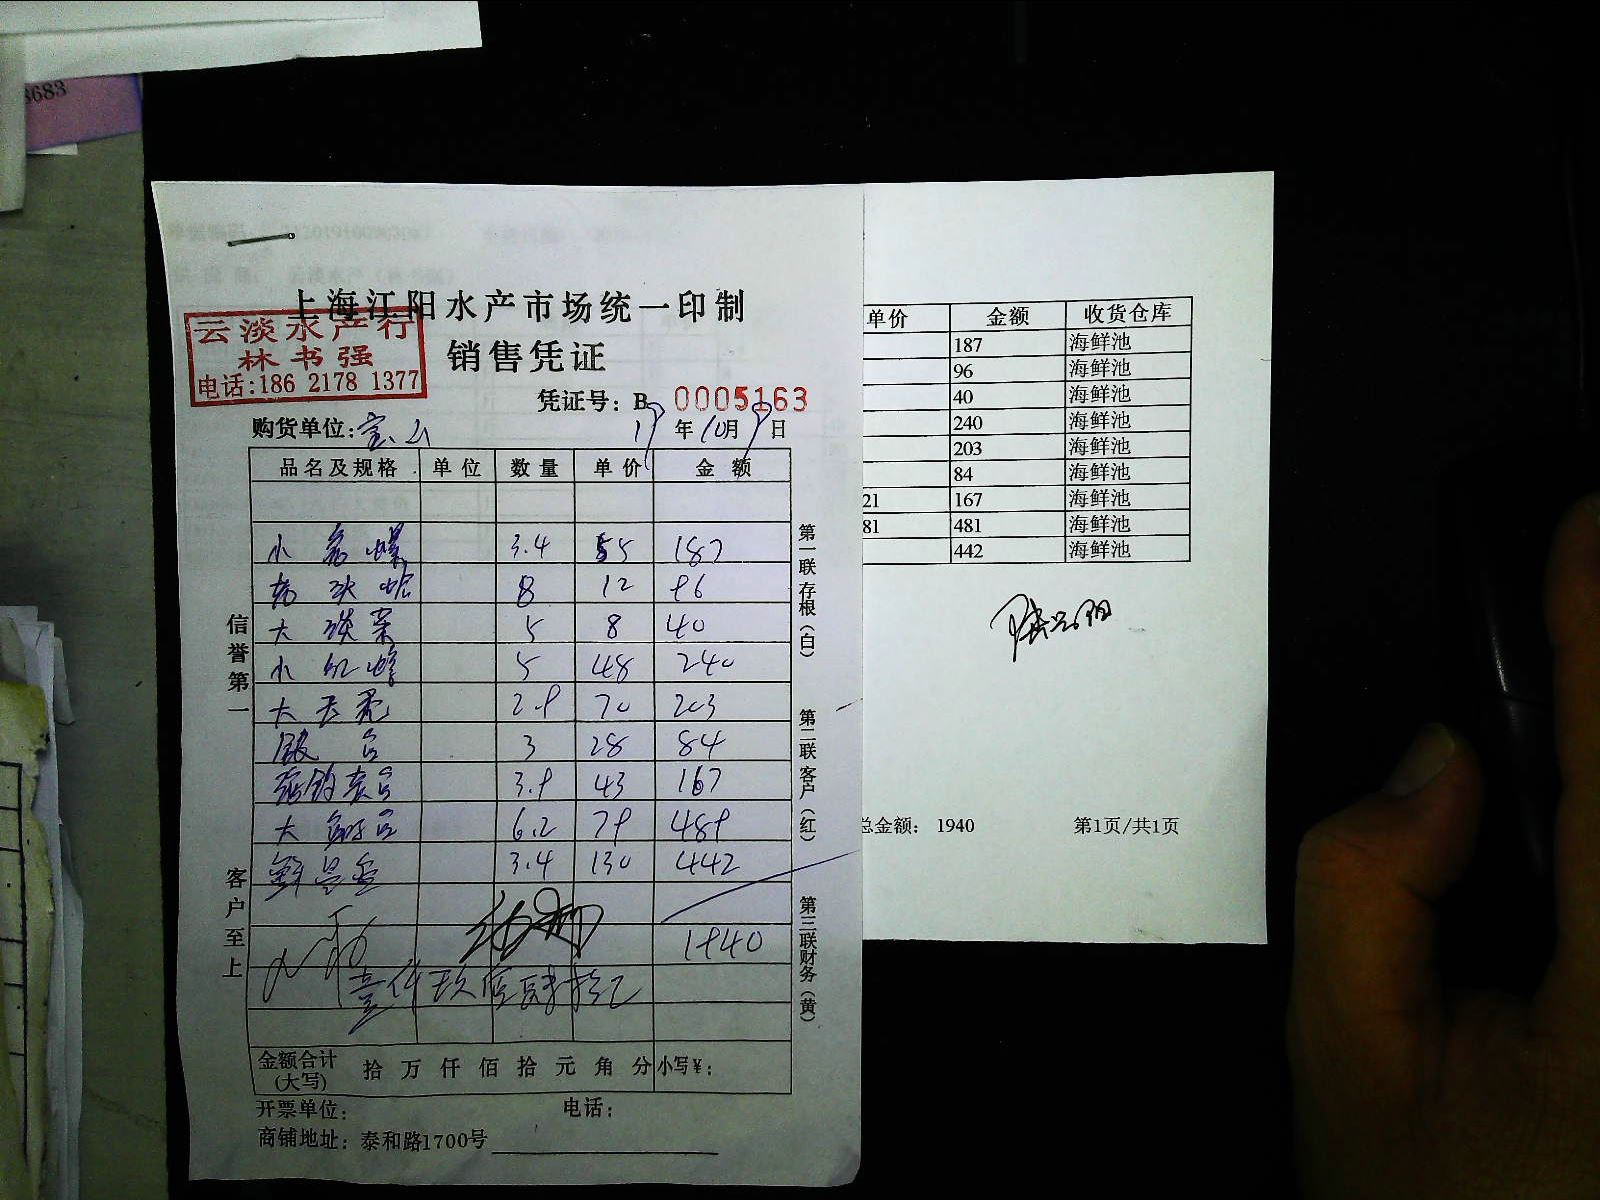 8683
上海江阳水产市场统一印制
云淡水产行
林书强
电话:186 2178 1377
销售凭证
凭证号: B 0005163
购货单位:宝山 19年10月9日
品名及规格 单位 数量 单价 金额
小 螺 3.4 55 187
8 12 96
大 5 8 40
小 5 48 240
大 2.9 70 203
3 28 84
3.9 43 167
大 6.2 79 489
鲜 3.4 130 442
1940
壹仟玖佰肆拾元
金额合计(大写) 拾 万 仟 佰 拾 元 角 分 小写¥:
开票单位: 电话:
商铺地址: 泰和路1700号
信誉第一
客户至上
第一联存根(白)
第二联客户(红)
第三联财务(黄)
单价 金额 收货仓库
187 海鲜池
96 海鲜池
40 海鲜池
240 海鲜池
203 海鲜池
84 海鲜池
21 167 海鲜池
81 481 海鲜池
442 海鲜池
总金额: 1940 第1页/共1页